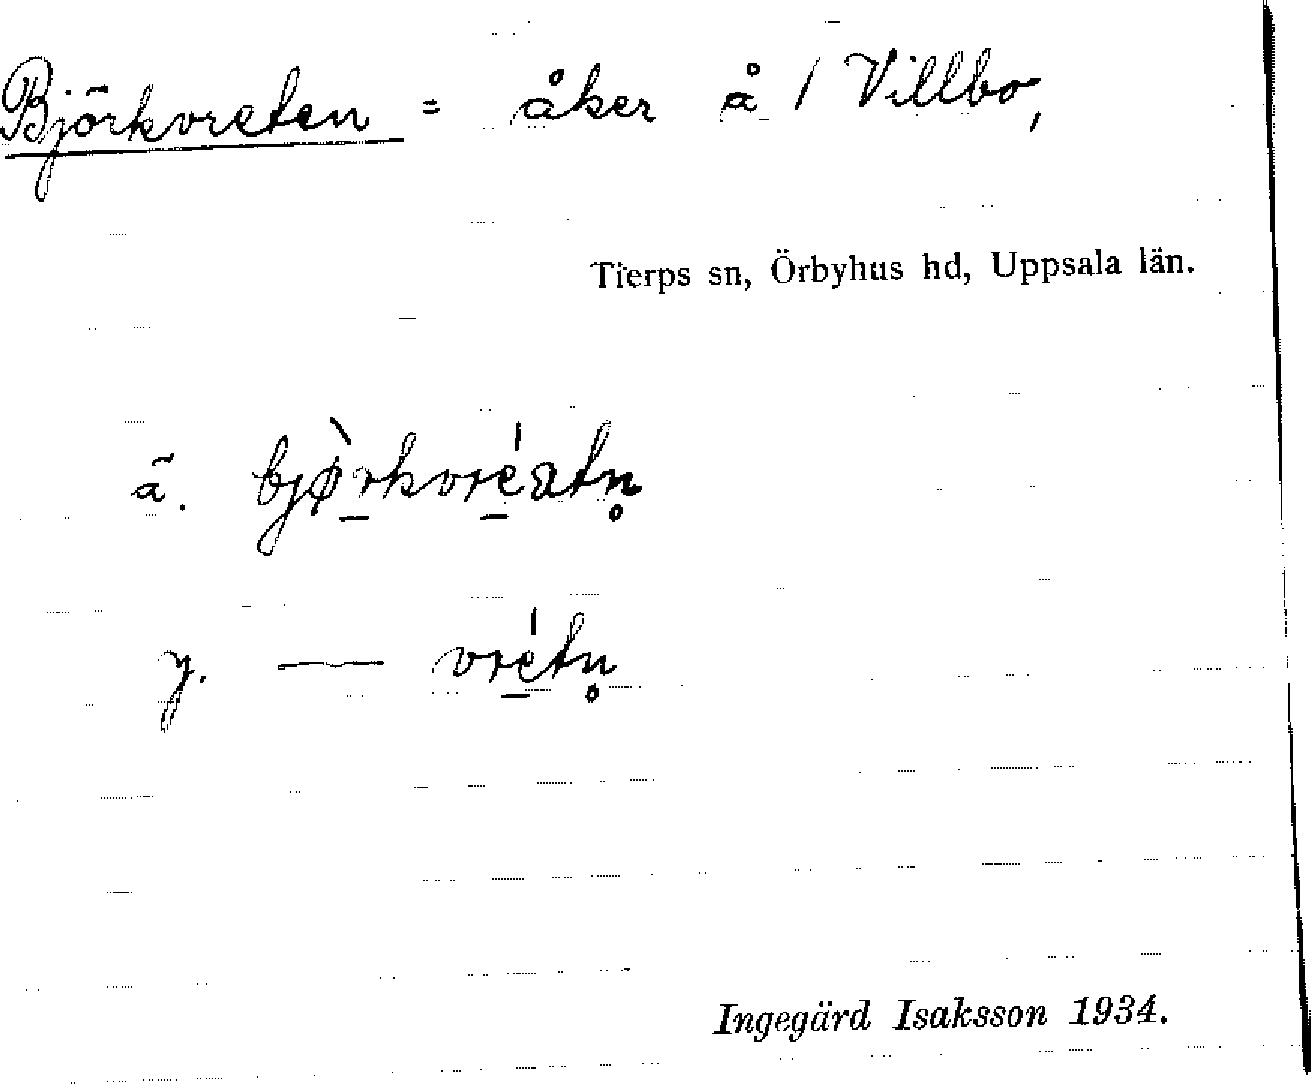 Björkvreten = åker å 1 Villbo,
Tierps sn, Örbyhus hd, Uppsala län.
ä. bjø̀rkvréatn̥
y. — vrétn̥
Ingegärd Isaksson 1934.